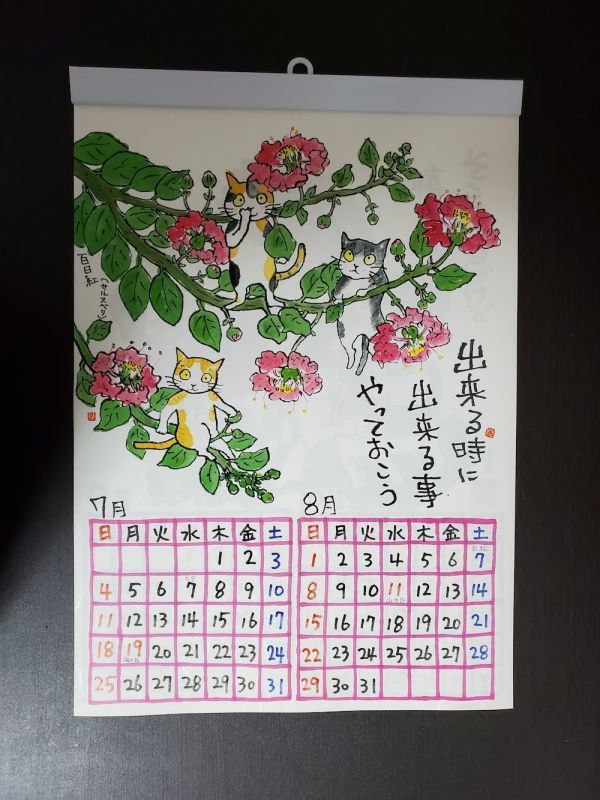 百日紅
(サルスベリ)
出来る時に
出来る事
やっておこう
7月
日 月 火 水 木 金 土
1 2 3
4 5 6 7 8 9 10
11 12 13 14 15 16 17
18 19 20 21 22 23 24
海の日
25 26 27 28 29 30 31
8月
日 月 火 水 木 金 土
1 2 3 4 5 6 7
8 9 10 11 12 13 14
山の日
15 16 17 18 19 20 21
22 23 24 25 26 27 28
29 30 31